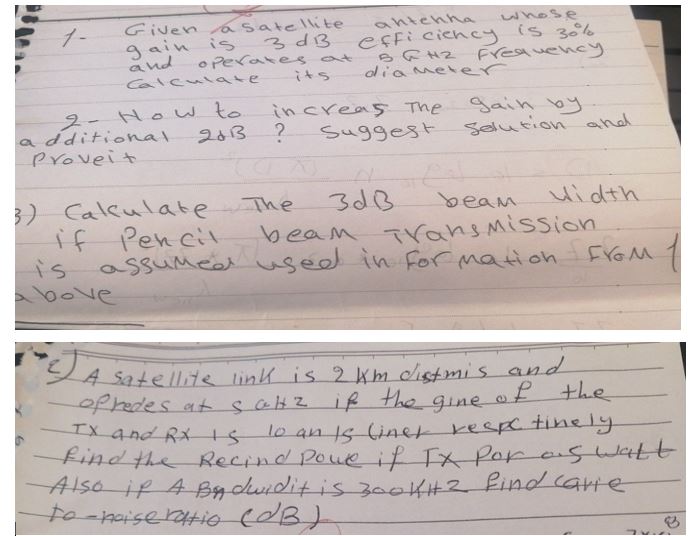 1- Given a satellite antenna whose
gain is 3 dB efficiency is 30%
and operates at 5 GHz Frequency
Calculate its diameter
2- How to increas The gain by
additional 2dB ? Suggest solution and
Proveit
3) Calculate The 3dB beam width
if Pencil beam Transmission
is assumed used in for mation From 1
above
A satellite link is 2 Km distmis and
opredes at 5 GHz if the gine of the
TX and RX is 10 an 15 Liner respc tinely
Find the Recind Powe if TX Por 0.5 watt
Also if A Bandwidit is 300KHz Find carie
to-noise ratio (dB)